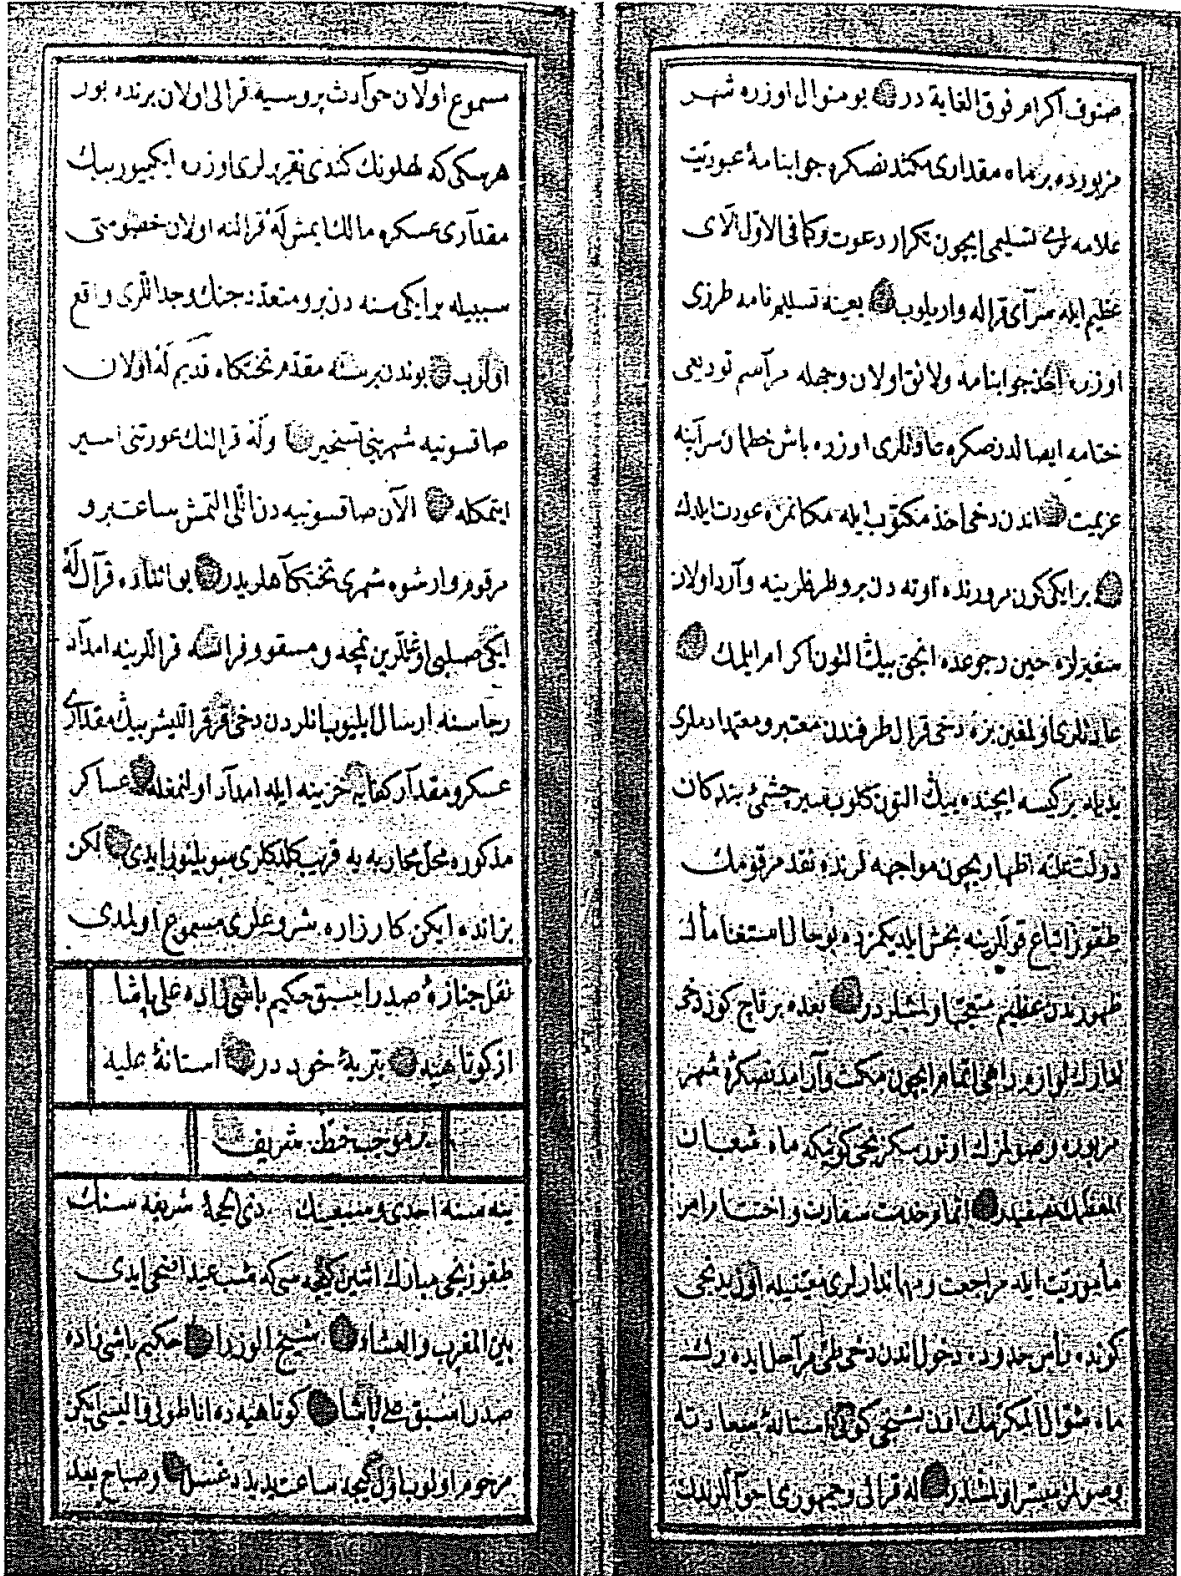 صنوف اکرام فوق الغایة در بو منوال اوزره شهر
مزبورده بر ماه مقداری مکثدنصکره جوابنامۀ عبودیت
علامه لری تسلیمی ایچون تکرار دعوت و کما فی الاول آلای
عظیم ایله سرآی قراله واریلوب بعینه تسلیم نامه طرزی
اوزره اخذ جوابنامه و لائق اولان و جمله مرآسم تودیعی
ختامه ایصالدنصکره عادتلری اوزره باش خطمان سرآینه
عزیمت اندن دخی اخذ مکتوب ایله مکانمزه عودت ایلدك
بر ایکی کون مرورنده اوته دن برو طرفلرینه وآرد اولان
سفیرلره حین رجوعده انجق بیك التون اکرام ایلمك
عادتلری اولمغین بزه دخی قرال طرفندن معتبر و معتمد ادملری
یدیله بر کیسه ایچنده بیك التون کلوب سیر چشمئ بندکان
دولت علیه اظهار ایچون مواجهه لرنده نقد مرقومك
طقوز اتباع قوللرینه بخش ایلدیکمزده بو حال استغنا مآلك
ظهورندن عظیم متعجب اولمشلردر بعده بر قاچ کون دخی
تدارك لوازم راهی اتمام ایچون مکث و آرامدنصکره شهر
مزبوره وصولمزك اوتوز سکزنجی کونیکه ماه شعبان
المعظمك نصفیدر اتمام خدمت سفارت و اختتام امر
مأموریت ایله مراجعت و مهماندارلری معیتیله اون یدنجی
کونده رأس حدوده دخول اندن دخی طی مرآحل ایده رك
ماه شوال المکرمك یکرمی بشنجی کونی استانۀ سعادته
وصولمز میسر اولمشدر له قرالی و جمهوری احوآللرندن
مسموع اولان حوآدث پروسیه قرالی اولان برنده بور
هرسکی که لهلونك کندی تقریرلری اوزره ایکیوز بیك
مقدآری عسکره مالك ایمش له قرالنه اولان خصومتی
سببیله بر ایکی سنه دن برو متعدد جنك و جداللری واقع
اولوب بوندن بر سنه مقدم تختکاه قدیم له اولان
صاقسونیه شهرینی تسخیر و له قرالنك عورتنی اسیر
ایتمکله الآن صاقسونیه دن اللی التمش ساعت برو
مرقوم وارشوه شهری تختکآهلریدر بو اثناده قرآل له
ایکی صلبی اوغللرین نمچه و مسقو و فرانسه قراللرینه امدآد
رجاسنه ارسال ایلیوب انلردن دخی قرقر اللیشر بیك مقدآری
عسکر و مقدآر کفایه خزینه ایله امدآد اولنمغله عساکر
مذکوره محل محاربه یه قریب کلدکلری سویلنور ایدی لکن
بز انده ایکن کارزاره شروعلری مسموع اولمدی
نقل جنازۀ صدر اسبق حکیم باشی زاده علی پاشا
از کوتاهیه بتربۀ خود در استانۀ علیه
بر موجب خط شریف
ینه سنه احدی و سبعینك ذی الحجۀ شریفه سنك
طقوزنجی مبارك اثنین کیجه سی که شب عید اضحی ایدی
بین المغرب والعشاء شیخ الوزرا حکیم باشی زاده
صدر اسبق علی پاشا کوتاهیه ده اناطولی والیسی ایکن
مرحوم اولوب اول کیجه ساعت یدیده غسل و صباح بعد